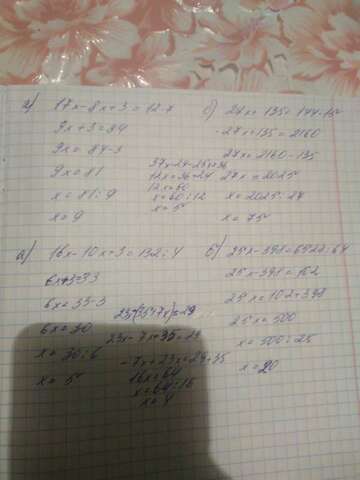 а) 17x-8x+3=12·7
9x+3=84
9x=84-3
9x=81
x=81:9
x=9
б) 27x+135=144·15
27x+135=2160
27x=2160-135
27x=2025
x=2025:27
x=75
37x-24-25x=36
12x=36+24
12x=60
x=60:12
x=5
а) 16x-10x+3=132:4
6x+3=33
6x=33-3
6x=30
x=30:6
x=5
23x-7x+35=29
-7x+23x=29+35
16x=64
x=64:16
x=4
б) 25x-398=6528:64
25x-398=102
25x=102+398
25x=500
x=500:25
x=20